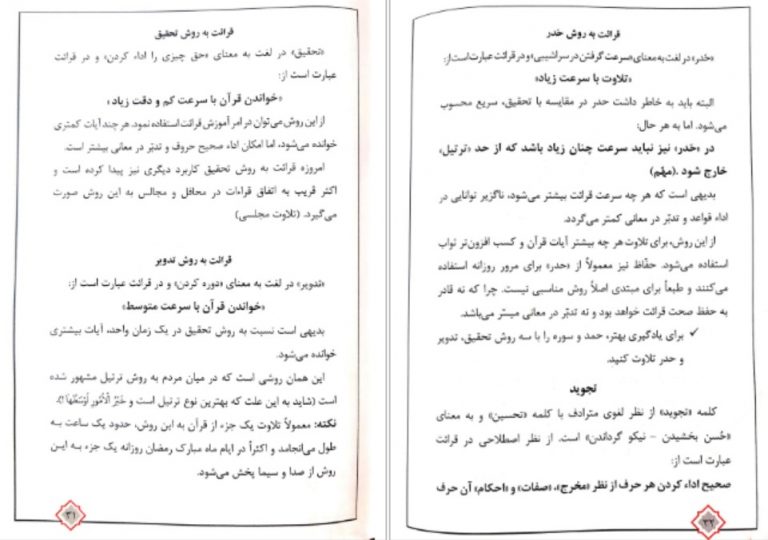 قرائت به روش تحقیق
«تحقیق» در لغت به معنای «حق چیزی را اداء کردن» و در قرائت
عبارت است از:
«خواندن قرآن با سرعت کم و دقت زیاد»
از این روش می‌توان در امر آموزش قرائت استفاده نمود. هر چند آیات کمتری
خوانده می‌شود، اما امکان اداء صحیح حروف و تدبّر در معانی بیشتر است.
امروزه قرائت به روش تحقیق کاربرد دیگری نیز پیدا کرده است و
اکثر قریب به اتفاق قراءات در محافل و مجالس به این روش صورت
می‌گیرد. (تلاوت مجلسی)
قرائت به روش تدویر
«تدویر» در لغت به معنای «دوره کردن» و در قرائت عبارت است از:
«خواندن قرآن با سرعت متوسط»
بدیهی است نسبت به روش تحقیق در یک زمان واحد، آیات بیشتری
خوانده می‌شود.
این همان روشی است که در میان مردم به روش ترتیل مشهور شده
است (شاید به این علت که بهترین نوع ترتیل است و خَیْرُ الْاُمُورِ اَوْسَطُهَا!).
نکته: معمولاً تلاوت یک جزء از قرآن به این روش، حدود یک ساعت به
طول می‌انجامد و اکثراً در ایام ماه مبارک رمضان روزانه یک جزء به این
روش از صدا و سیما پخش می‌شود.
۳۱
قرائت به روش حَدر
«حَدر» در لغت به معنای «سرعت گرفتن در سراشیبی» و در قرائت عبارت است از:
«تلاوت با سرعت زیاد»
البته باید به خاطر داشت حدر در مقایسه با تحقیق، سریع محسوب
می‌شود. اما به هر حال:
در «حَدر» نیز نباید سرعت چنان زیاد باشد که از حد «ترتیل»
خارج شود .(مهّم)
بدیهی است که هر چه سرعت قرائت بیشتر می‌شود، ناگزیر توانایی در
اداء قواعد و تدبّر در معانی کمتر می‌گردد.
از این روش، برای تلاوت هر چه بیشتر آیات قرآن و کسب افزون‌تر ثواب
استفاده می‌شود. حفّاظ نیز معمولاً از «حدر» برای مرور روزانه استفاده
می‌کنند و طبعاً برای مبتدی اصلاً روش مناسبی نیست. چرا که نه قادر
به حفظ صحت قرائت خواهد بود و نه تدبّر در معانی میسّر می‌باشد.
✓ برای یادگیری بهتر، حمد و سوره را با سه روش تحقیق، تدویر
و حدر تلاوت کنید.
تجوید
کلمه «تجوید» از نظر لغوی مترادف با کلمه «تحسین» و به معنای
«حُسن بخشیدن – نیکو گرداندن» است. از نظر اصطلاحی در قرائت
عبارت است از:
صحیح اداء کردن هر حرف از نظر «مخرج»، «صفات» و «احکام» آن حرف
۳۲